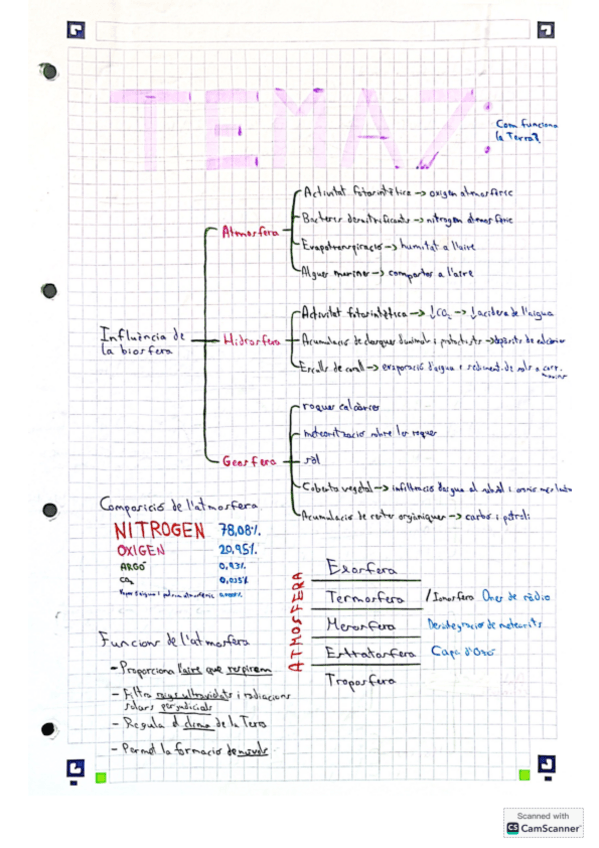 TEMA 7:
Com funciona
la Terra?
Influència de
la biosfera
Atmosfera
Activitat fotosintètica → oxigen atmosfèric
Bacteres desnitrificants → nitrogen atmosfèric
Evapotranspiració → humitat a l'aire
Algues marines → compostos a l'aire
Hidrosfera
Activitat fotosintètica → ↓CO₂ → ↓acidesa de l'aigua
Acumulació de closques d'animals i protoctists →
Esculls de corall → evaporació d'aigua i sediment. de sals a
Geosfera
roques calcàries
meteorització sobre les roques
sòl
Coberta vegetal → infiltració d'aigua al subsòl i
Acumulació de restes orgàniques → carbó i petroli
Composició de l'atmosfera
NITROGEN 78,08%
OXIGEN 20,95%
ARGÓ 0,93%
CO₂ 0,035%
ATMOSFERA
Exosfera
Termosfera /Ionosfera Ones de ràdio
Mesosfera Desintegració de meteorits
Estratosfera Capa d'Ozó
Troposfera
Funcions de l'atmosfera
- Proporciona l'aire que respirem
- Filtra raigs ultraviolats i radiacions
solars perjudicials
- Regula el clima de la Terra
- Permet la formació de núvols
Scanned with
CS CamScanner